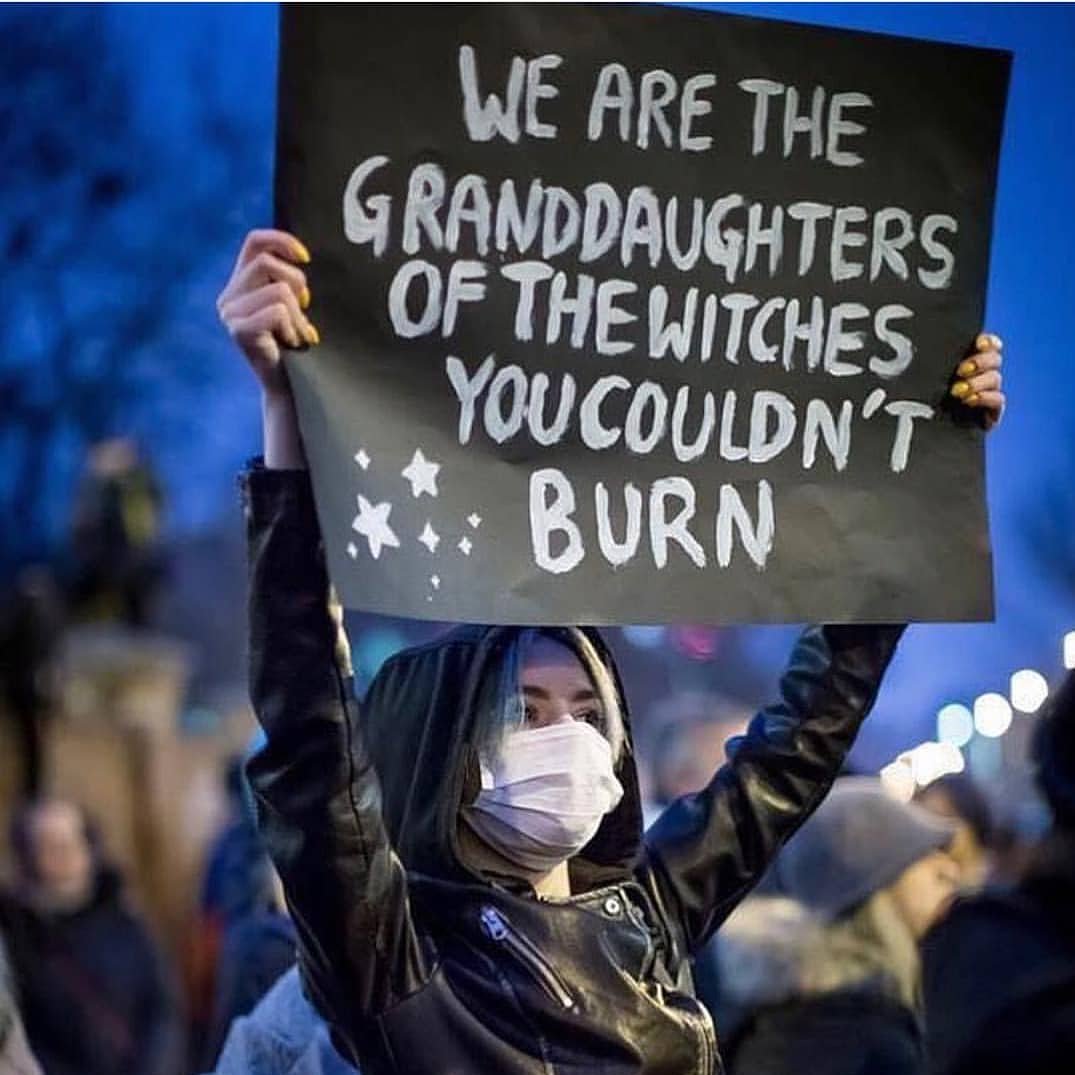 WE ARE THE
GRANDDAUGHTERS
OF THE WITCHES
YOU COULDN'T
BURN